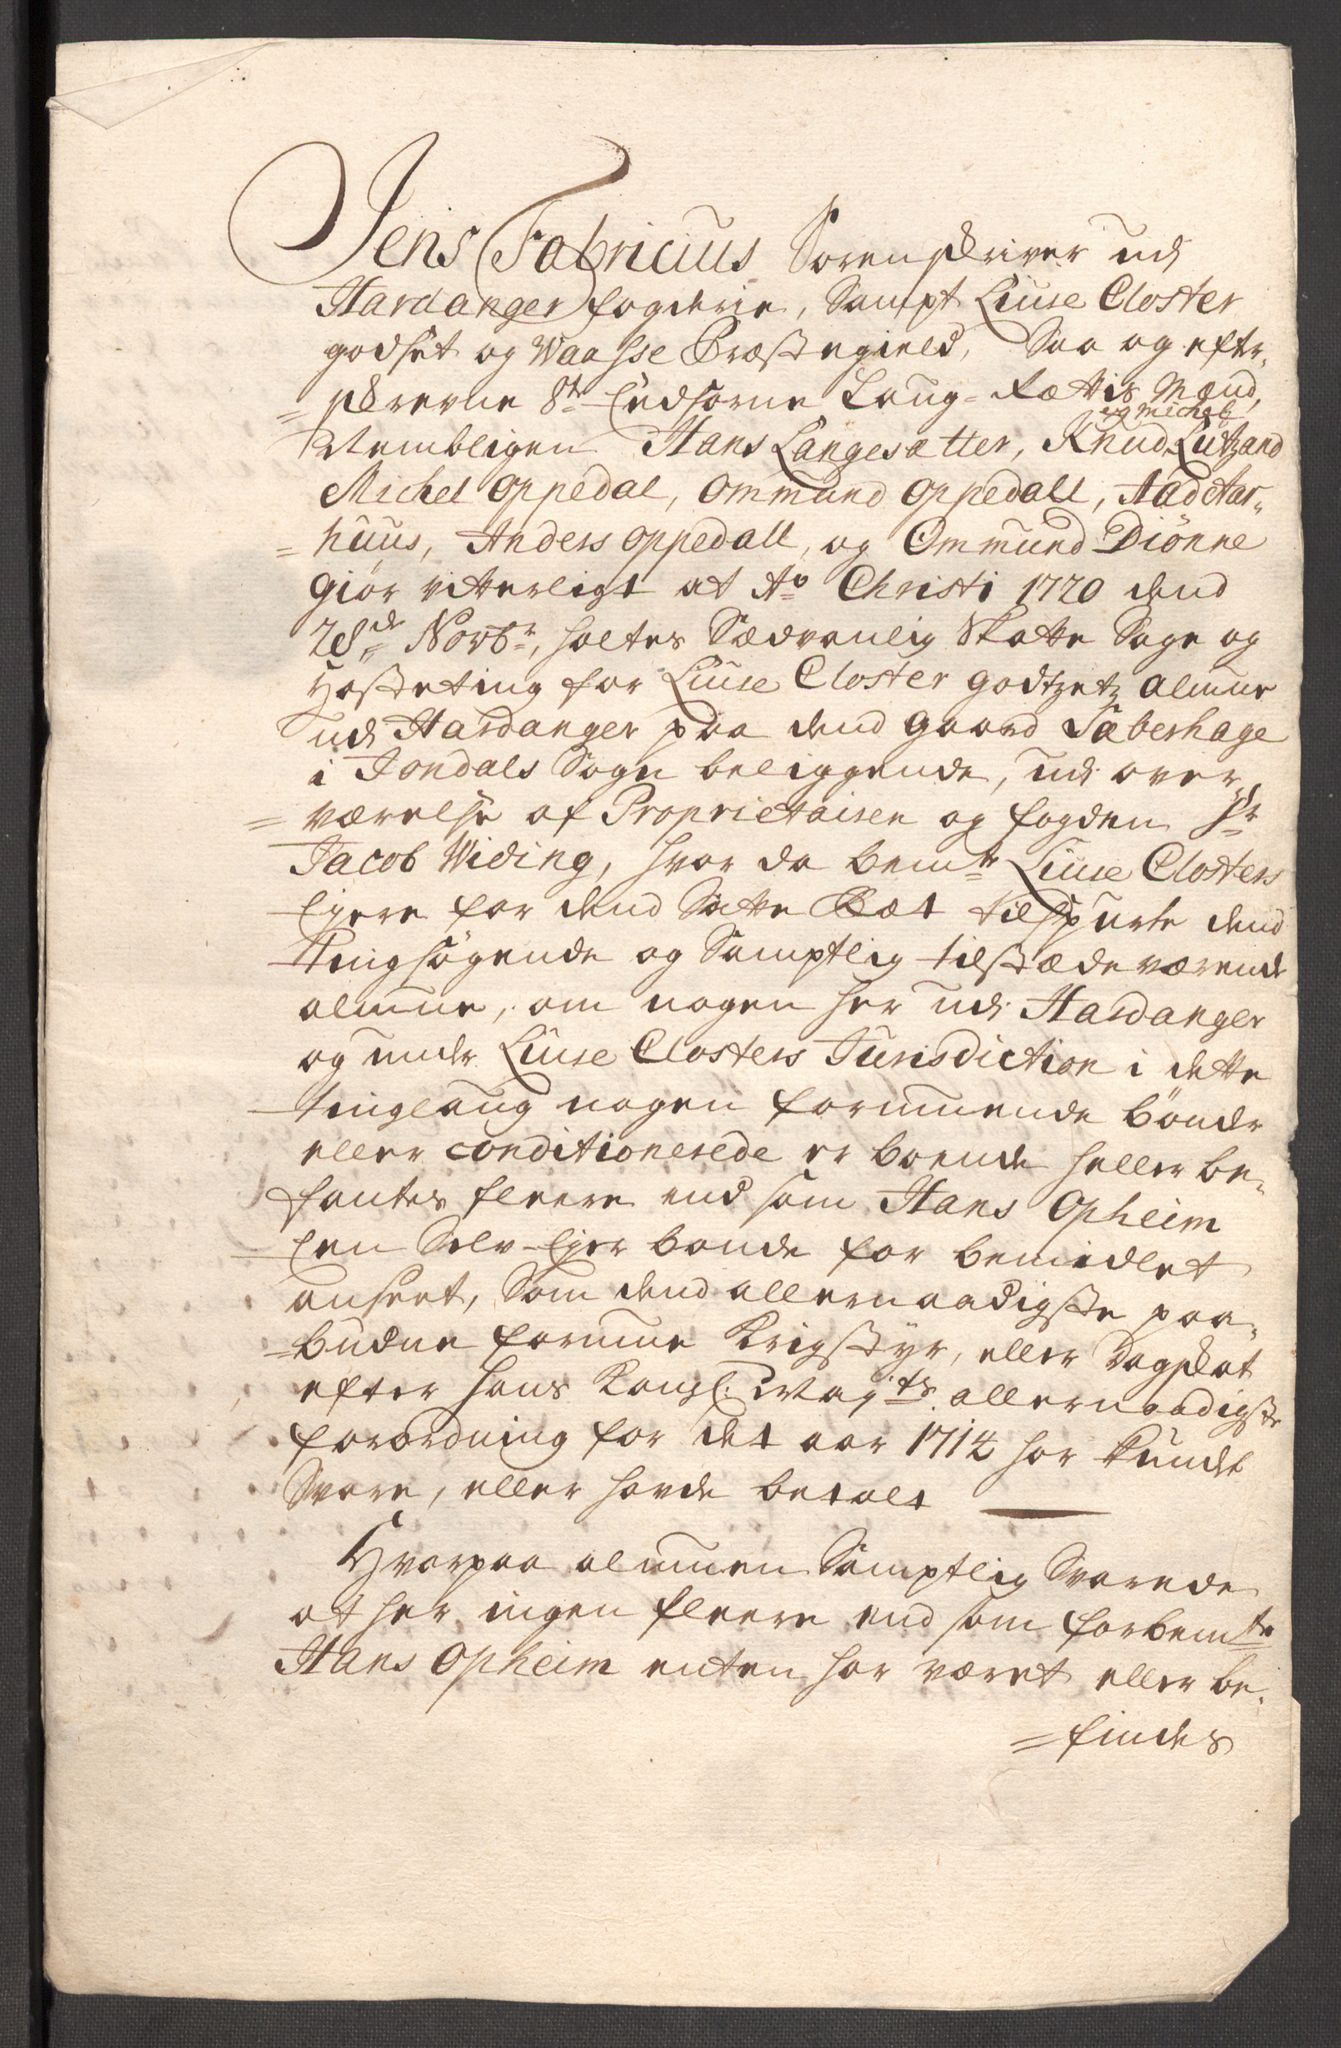 Jens Fabricius Sorenskriver udi
Hardanger fogderie, Sampt Liuse Closter
godset og Waasse Præstegield, Saa og efter-
skrevne 8te Eedsorne Laug-Rættis Mænd,
Nembligen Hans Langesætter, Knud og Michel Lutzand
Michel Oppedal, Ommund Oppedall, Aad Aar-
huus, Anders Oppedall, og Ommund Diönne
Giör vitterligt at Ao Christi 1720 dend
28de Novbr, holtes Sædvanlig Skatte Sage og
Høsteting for Liuse Closter Godtzetz Almue
udi Hardanger paa dend Gaard Saberhage
i Jondals Sogn beliggende, udi over-
værelse af Proprietairen og fogden Hr
Jacob Widing, hvor da bemte Liuse Closters
Ejere for dend Satte Ræt tilspurte dend
Tingsögende og Samptlig tilstædeværende
almue, om nogen her udi Hardanger
og under Liuse Closters Jurisdiction i dette
tinglaug nogen formuende bönder
eller conditionerede er boende heller be-
fantes fleere end som Hans Opheim
Een Selv-Ejer bonde for bemidlet
anseet, Som dend allernaadigste paa-
budne formue Krigsstyr, eller Dagskat
efter Hans Kongl: Mayts allernaadigste
forordning for det aar 1714 har kundet
Svare, eller hafde betalt
Hvorpaa almuen Samptlig Svarede
at her ingen fleere end som forbemte
Hans Opheim enten har været eller be-
findes